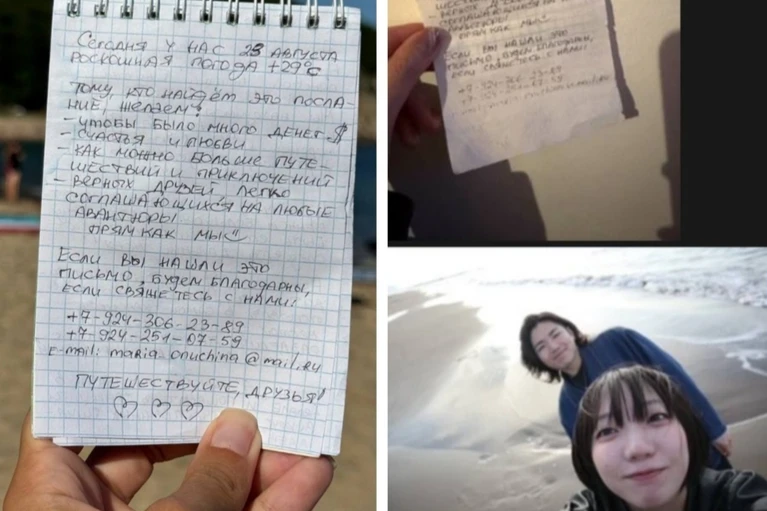 Сегодня у нас 28 августа
роскошная погода +29°C
Тому, кто найдёт это посла-
ние, желаем:
- чтобы было много денег $
- счастья и любви
- как можно больше путе-
шествий и приключений
- верных друзей легко
соглашающихся на любые
авантюры
прям как мы
Если вы нашли это
письмо, будем благодарны,
если свяжетесь с нами:
+7-924-306-23-89
+7-924-251-07-59
e-mail: maria.onuchina@mail.ru
Путешествуйте, друзья!
- верных
соглашающихся на
авантюры
прям как мы
Если вы нашли это
письмо, будем благодарны,
если свяжетесь с нами:
+7-924-306-23-89